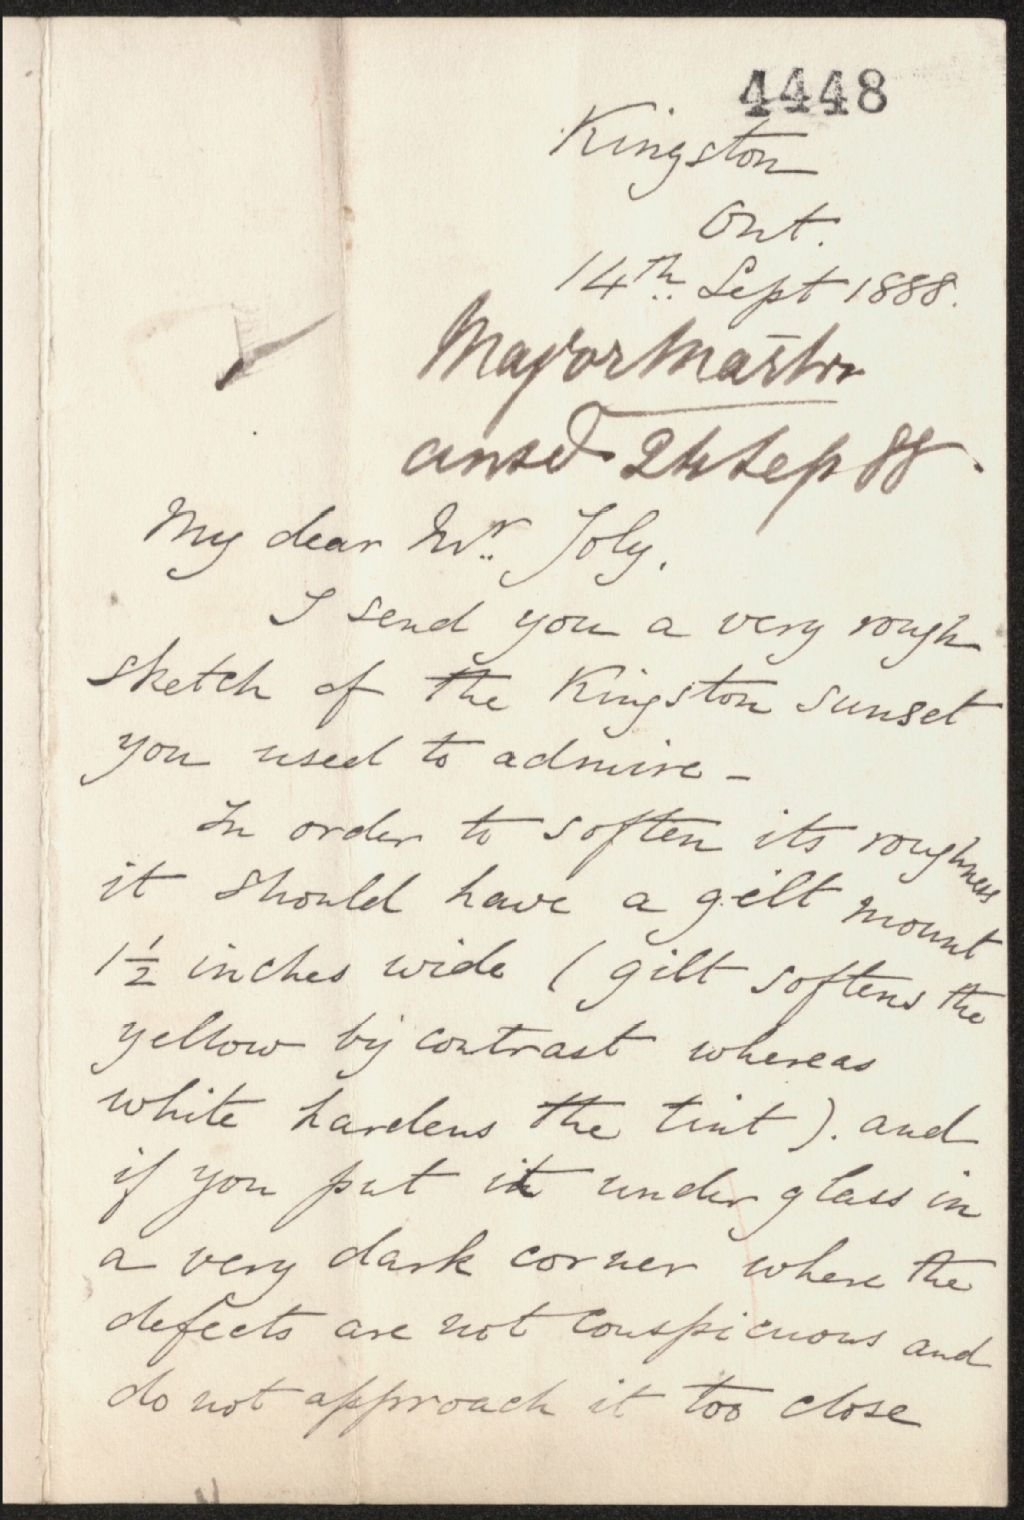 4448
Kingston
Ont.
14th Sept 1888.
Major Martin
ansd 24 Sep 88.
My dear Mr. Joly,
I send you a very rough
sketch of the Kingston sunset
you used to admire -
In order to soften its roughness
it should have a gilt mount
1½ inches wide (gilt softens the
yellow by contrast whereas
white hardens the tint). and
if you put it under glass in
a very dark corner where the
defects are not conspicuous and
do not approach it too close